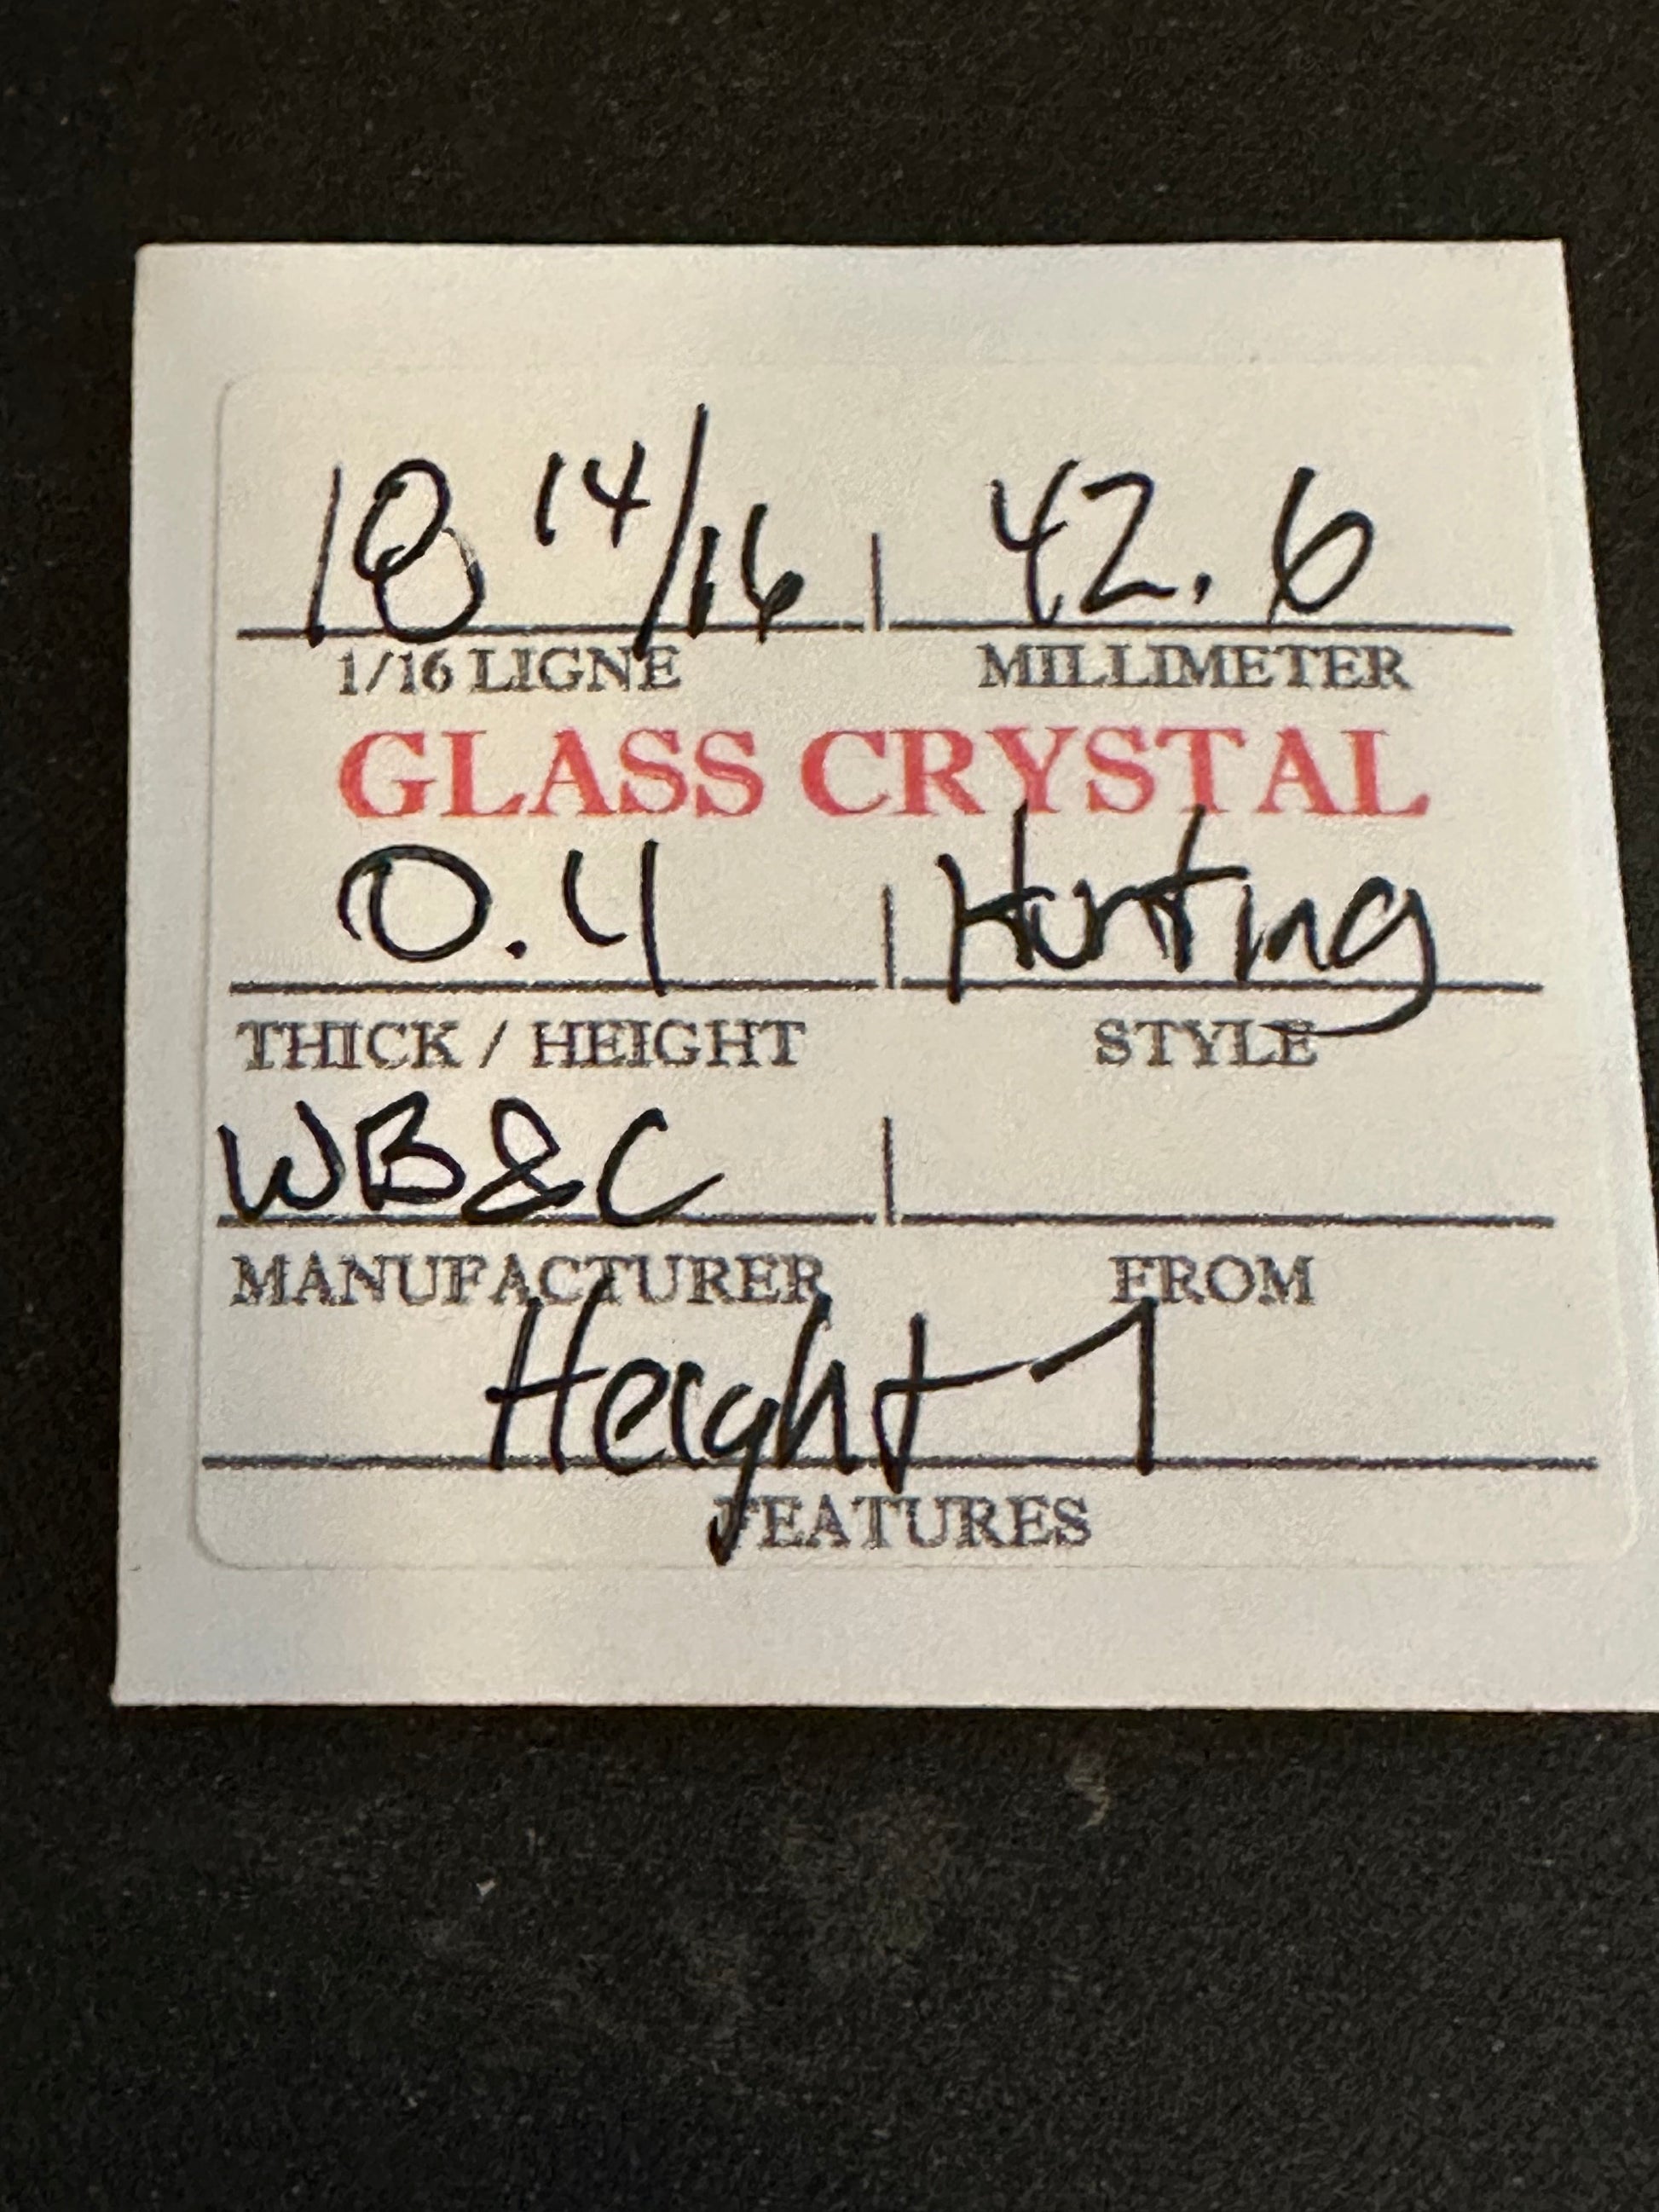 18 14/16 42.6
1/16 LIGNE MILLIMETER
GLASS CRYSTAL
0.4 Hunting
THICK / HEIGHT STYLE
WB&C
MANUFACTURER FROM
Height 1
FEATURES